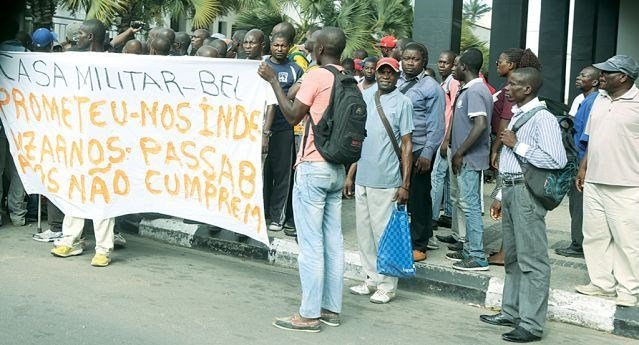 CASA MILITAR-BEL
PROMETEU-NOS INDE
NIZARNOS-PASSAB
NÃO CUMPREM